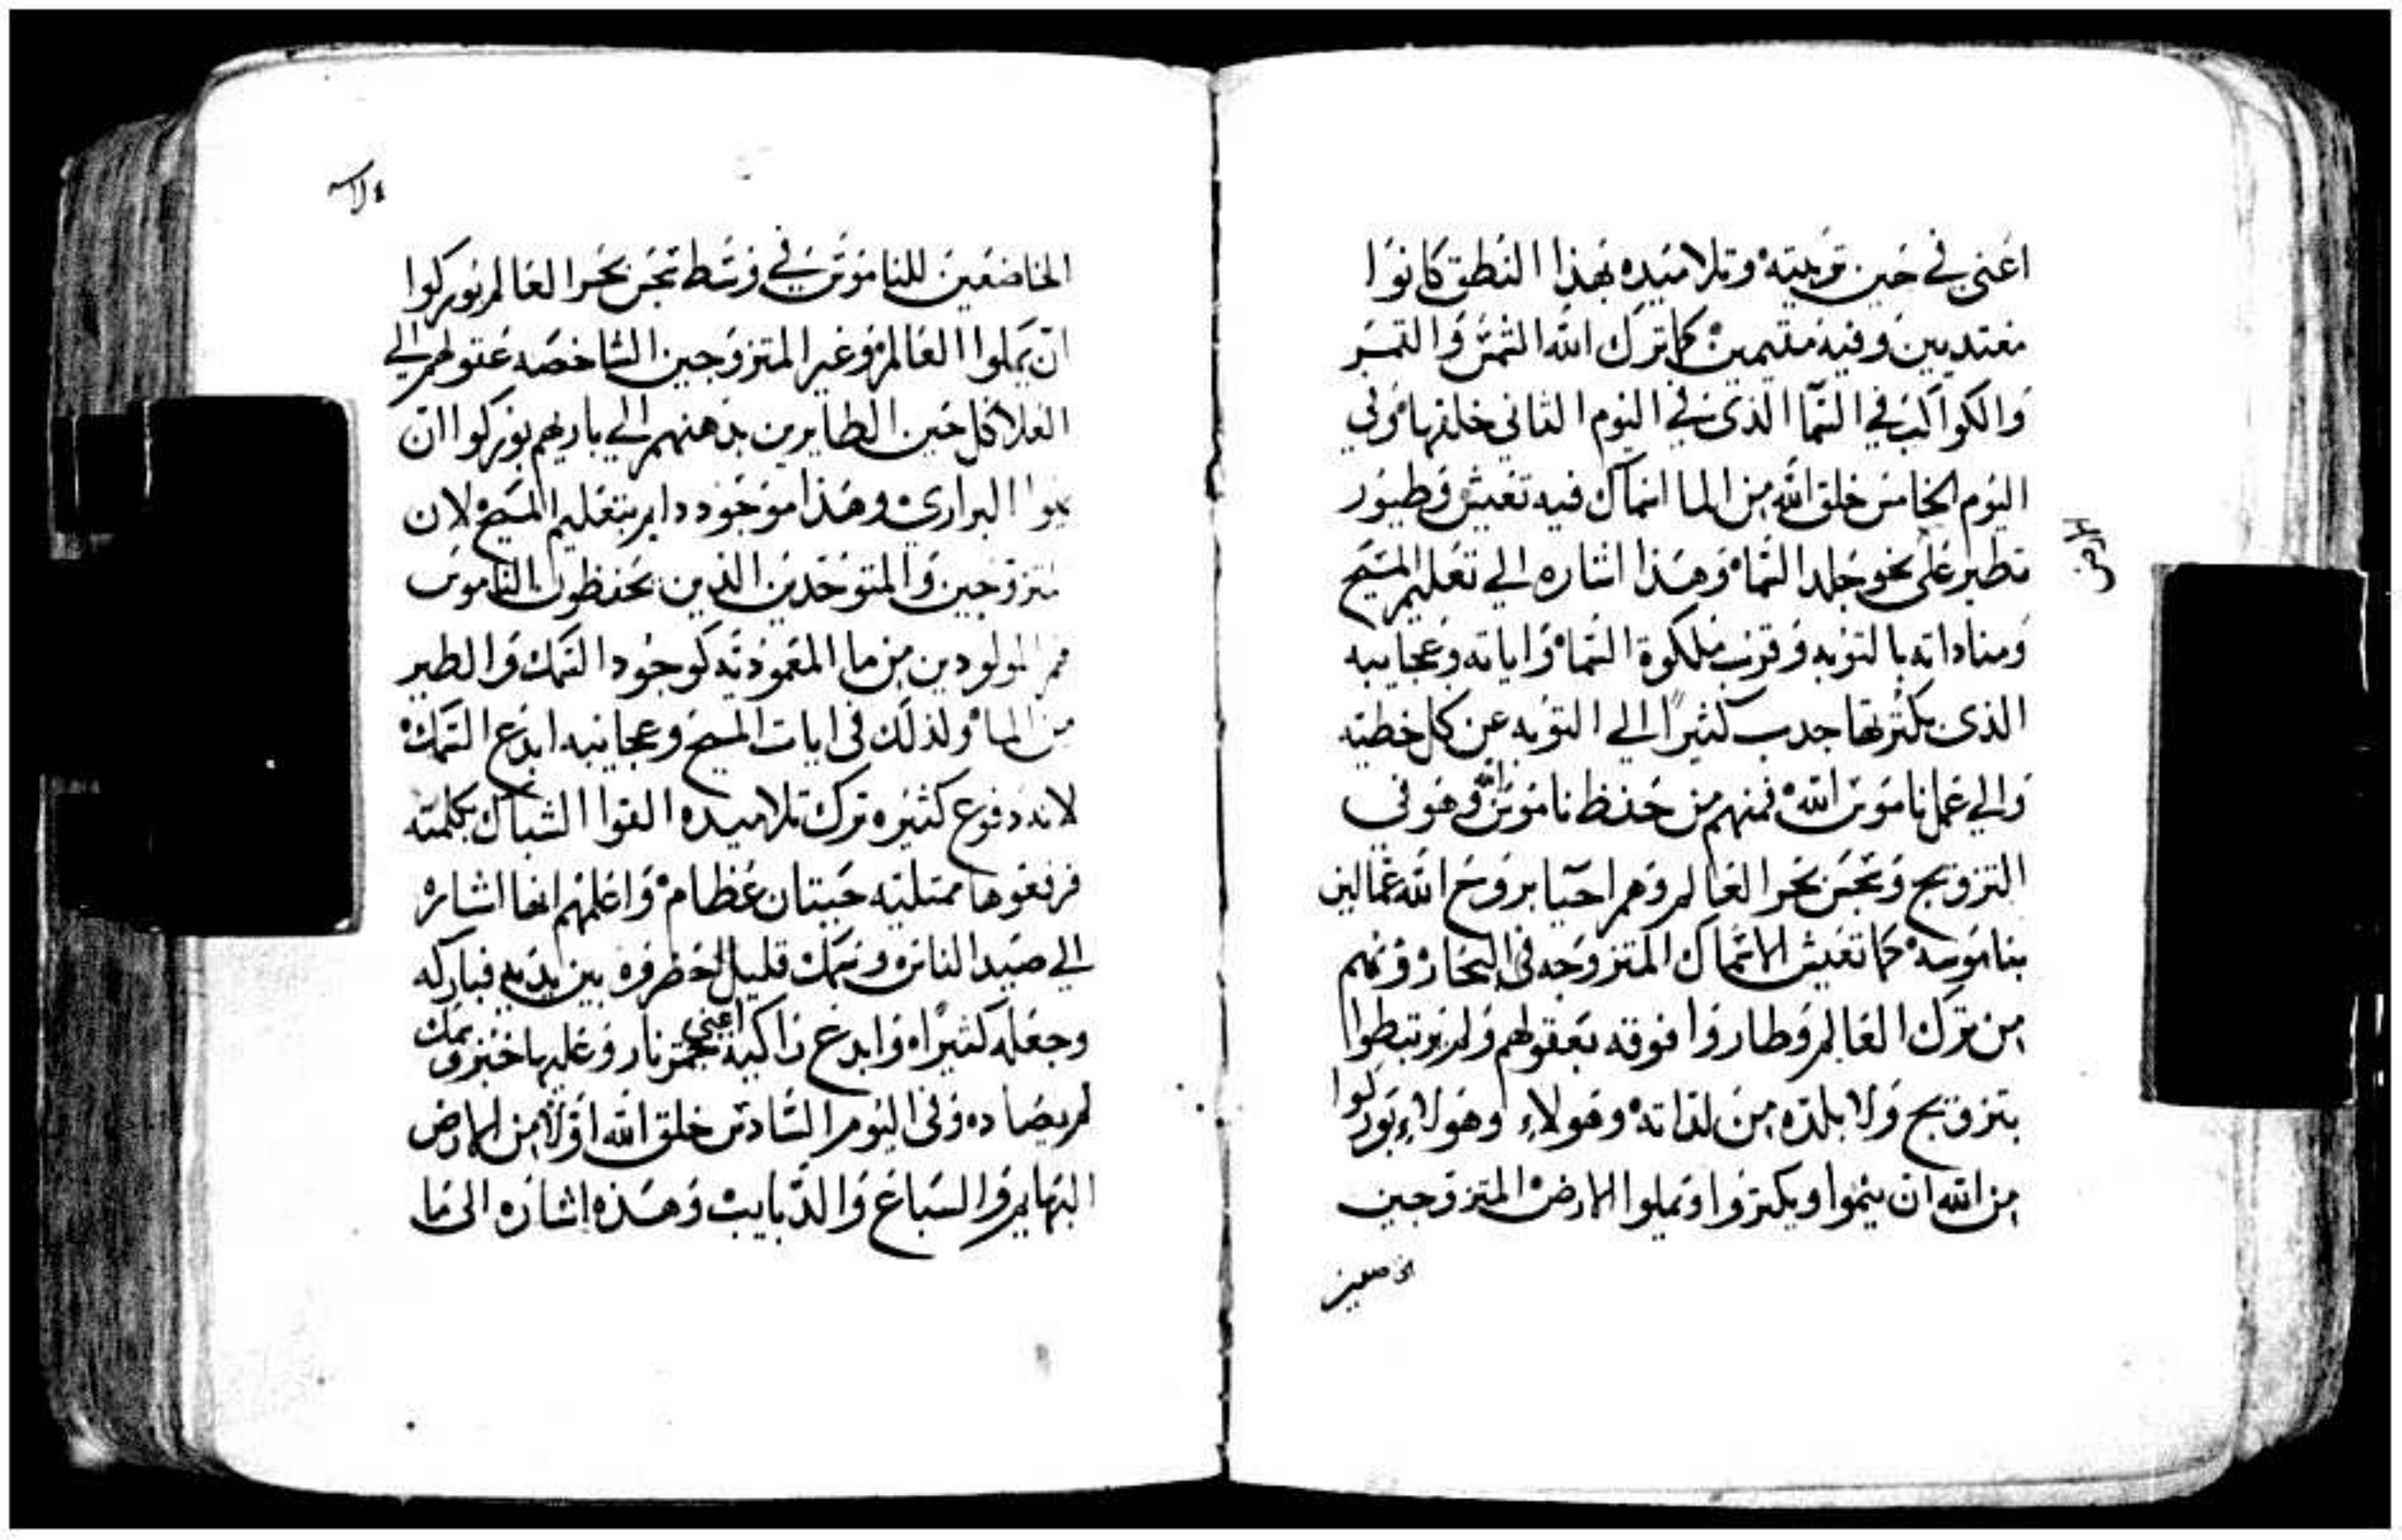 اعني في حين توبته وتلاميذه بهذا النطق كانوا
مغتديين وفيه مقيمين كما ترك الله الشمس والقمر
والكواكب في السما الذي في اليوم الثاني خلقها وفي
اليوم الخامس خلق الله من الما اسماك فيه تعيش وطيور
تطير على نحو جلد السماء وهذا اشاره الي تعليم المسيح
ومناداته بالتوبه وقرب ملكوة السماء واياته وعجايبه
الذي بكثرتها جدب كثيرًا الي التوبه عن كل خطيه
والي عمل ناموس الله فمنهم من حفظ ناموس الله وهو في
التزويج وتجس بحر العالم وهم احيا بروح الله عمالين
بناموسه كما تعيش الاسماك المتزوجه في البحار ومنهم
من ترك العالم وطاروا فوقه بعقولهم ولم يرتبطوا
بتزويج ولا بلذه من لذاته وهولاء وهولاء بوركوا
من الله ان ينموا ويكتروا ويملوا الارض المتزوجين
الخاضعين
الخاضعين للناموس في وسط تجس بحر العالم بوركوا
ان يملوا العالم وغير المتزوجين الشاخصه عقولهم الي
العلا كل حين الطايرين بذهنهم الي باريهم بوركوا ان
البراري وهذا موجود داير بتعليم المسيح لان
المتزوجين والمتوحدين الذين يحفظون الناموس
هم المولودين من ما المعموديه كوجود السمك والطير
من الماء ولذلك في ايات المسيح وعجايبه ابدع السمك
لانه دفوع كثيره ترك تلاميده القوا الشباك بكلمته
فرفعوها ممتليه حيتان عظام واعلمهم انها اشاره
الي صيد الناس وسمك قليل احضروه بين يديه فباركه
وجعله كثيرًا وابدع زاكيه اعني جمر نار وعليها خبز وسمك
لم يصاده وفي اليوم السادس خلق الله اولًا من الارض
البهايم والسباع والدبايب وهذه اشاره الى ما